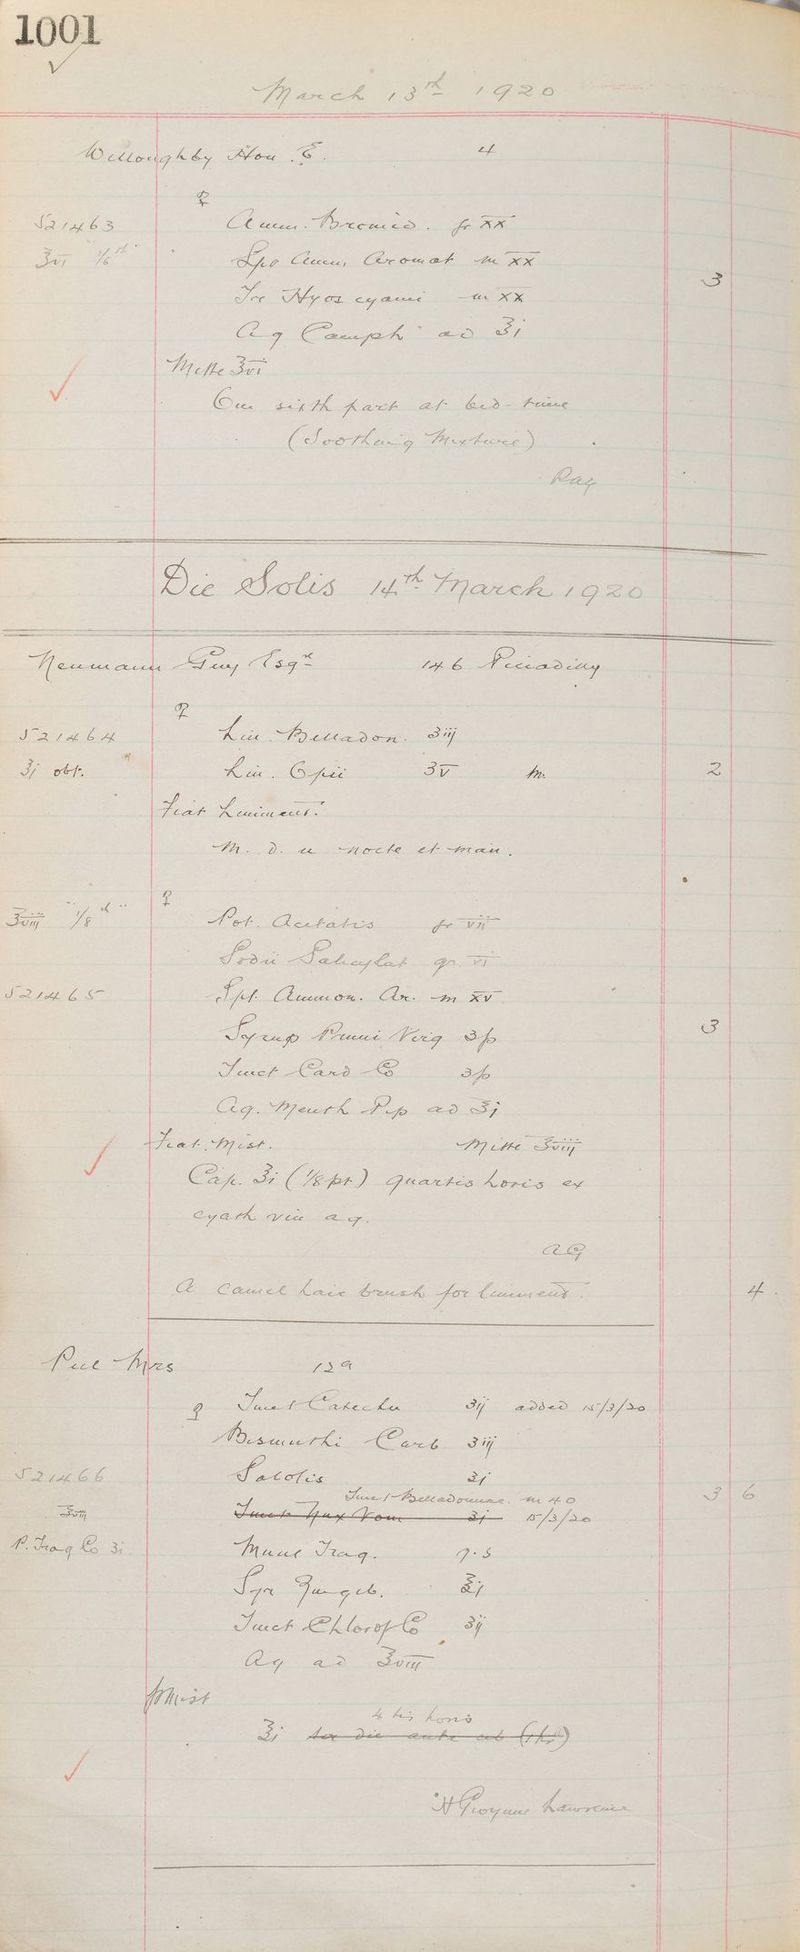 1001
March 13th 1920
Willoughby Hon. E. 4
℞
521463 Amm. Bromid. gr xx
℥vi 1/6th Spo Amm. Aromat m xx 3
Tre Hyoscyami m xx
Aq Camph ad ℥i
Mitte ℥vi
One sixth part at bed-time
(Soothing Mixture)
Die Solis 14th March 1920
Neumann Guy Esqr 146 Piccadilly
℞
521464 Lin. Belladon. ʒiij
℥j obt. Lin. Opii ʒv m. 2
Fiat Liniment.
M. d. u nocte et man.
℥viii "1/8th" ℞
Pot. Acetatis gr vii
Sodii Salicylat gr. vi
521465 Spt. Ammon. Ar. m xv
Syrup Pruni Virg ʒß 3
Tinct Card Co ʒß
Aq. Menth Pip ad ℥j
Fiat. Mist. Mitte ℥viii
Cap. ℥i (1/8 pt) quartis horis ex
cyath vin aq.
AG
A camel hair brush for liniment. 4
Peel Mrs 12a
℞ Tinct Catechu ʒij added 15/3/20
Bismuthi Carb ʒiij
521466 Salolis ʒi 3 6
Tinct Belladonnae. m 40
℥viii Tinct Nux Vom ʒi 15/3/20
P. Trag Co ʒi Muc Trag. q.s
Syr Zingib. ℥j
Tinct Chlorof Co ʒij
Aq ad ℥viii
ft Mist
4 tis horis
℥i ter die ante cib (1hr)
H Gwynne Lawrence